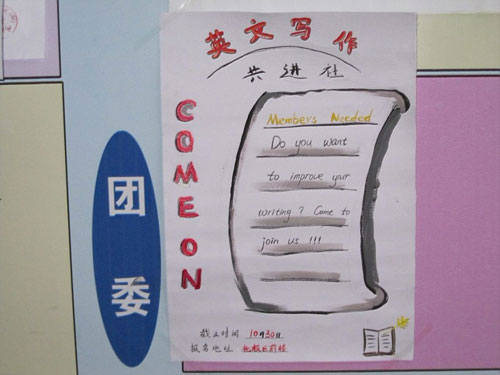 英文写作
共进社
COME ON
Members Needed
Do you want
to improve your
writing? Come to
join us !!!
团委
截止时间 10月30日
报名地址